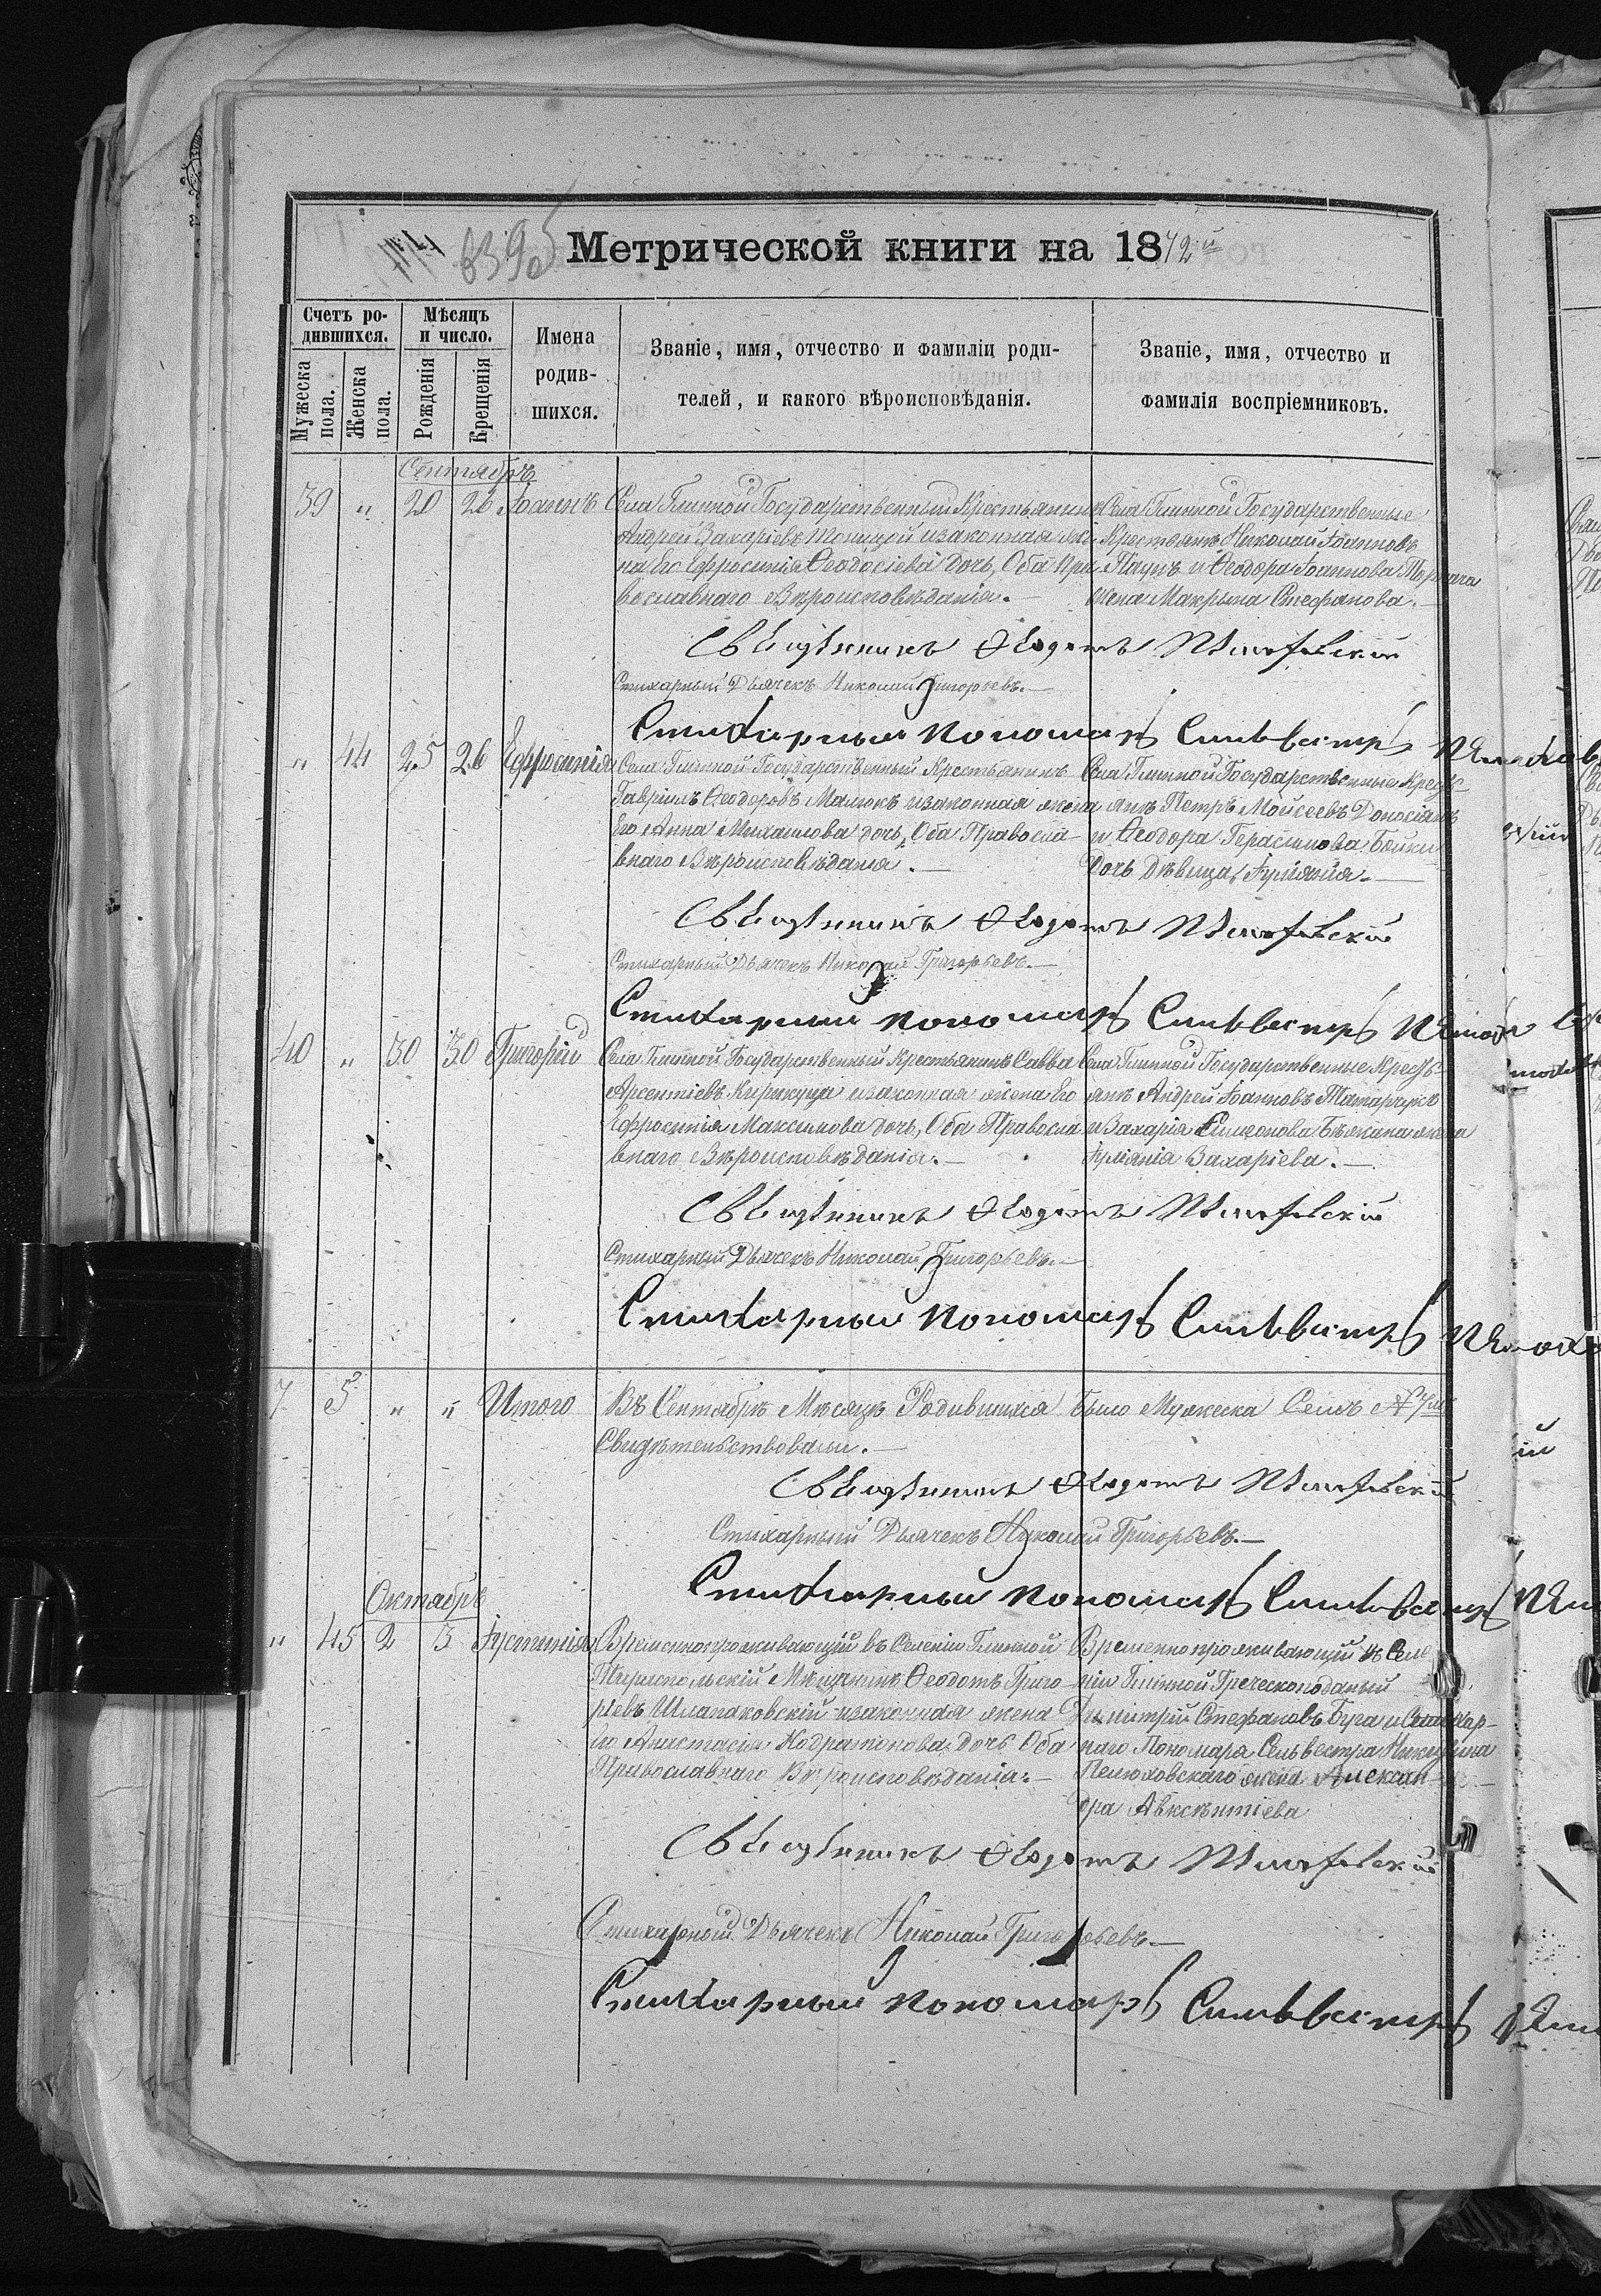 Метрической книги на 1872й
Счетъ ро-
дившихся.
Мужеска пола.
Женска пола.
Мѣсяцъ
и число.
Рожденія
Крещенія
Имена
родив-
шихся.
Званіе, имя, отчество и фамиліи роди-
телей, и какого вѣроисповѣданія.
Званіе, имя, отчество и
фамилія воспріемниковъ.
Сентябрь
39 " 20 26 Іоаннъ
Села Глинной Государственный Крестьянинъ
Андрей Захаріевъ изаконная же
на Его Ефросинія Ѳеодосіева дочь, Оба Пра
вославнаго Вѣроисповѣданія.
Села Глинной Государственные
Крестьянъ Николай Іоанновъ
Паунъ и Ѳеодора Іоаннова
жена Макрина Стефанова.
Священникъ Ѳеодотъ
Стихарный Дьячекъ Николай Григорьевъ.
Стихарный пономарь Сильвестръ
" 44 25 26 Ефросинія
Села Глинной Государственный Крестьянинъ
Гавріилъ Ѳеодоровъ Малюкъ изаконная жена
Его Анна Михаилова дочь, Оба Правосла-
внаго Вѣроисповѣданія.
Села Глинной Государственные Кресть
янъ Петръ Моисеевъ
и Ѳеодора Герасимова Бойки
Дочь Дѣвица Іуліанія.
Священникъ Ѳеодотъ
Стихарный Дьячекъ Николай Григорьевъ.
Стихарный пономарь Сильвестръ
40 " 30 30 Григорій
Села Глинной Государственный Крестьянинъ Савва
Арсентіевъ Кирикуца изаконная жена Его
Ефросинія Максимова дочь, Оба Правосла
внаго Вѣроисповѣданія.
Села Глинной Государственные Кресть
янъ Андрей Іоанновъ Татарчукъ
и Захарія Симеонова Бежана жена
Іуліанія Захаріева.
Священникъ Ѳеодотъ
Стихарный Дьячекъ Николай Григорьевъ.
Стихарный пономарь Сильвестръ
7 5 " " Итого
Въ Сентябрѣ Мѣсяцѣ Родившихся Было Мужеска Семь №7
Свидѣтельствовали.
Священникъ Ѳеодотъ
Стихарный Дьячекъ Николай Григорьевъ.
Стихарный пономарь Сильвестръ
Октябрь
" 45 2 3 Іустинія
Временнопроживающій въ Селеніи Глинной
Тираспольскій Мѣщанинъ Ѳеодотъ Григо
ріевъ Шлапаковскій изаконная жена
Его Анастасія Кодратонова дочь Оба
Православнаго Вѣроисповѣданія.
Временно проживающій въ Селе
ніи Глинной Греческоподаный
Димитрій Стефановъ Буга и Стихар-
наго Пономаря Сельвестра Никитина
Пелюховскаго жена Алексан-
дра Авксентіева
Священникъ Ѳеодотъ
Стихарный Дьячекъ Николай Григорьевъ.
Стихарный пономарь Сильвестръ